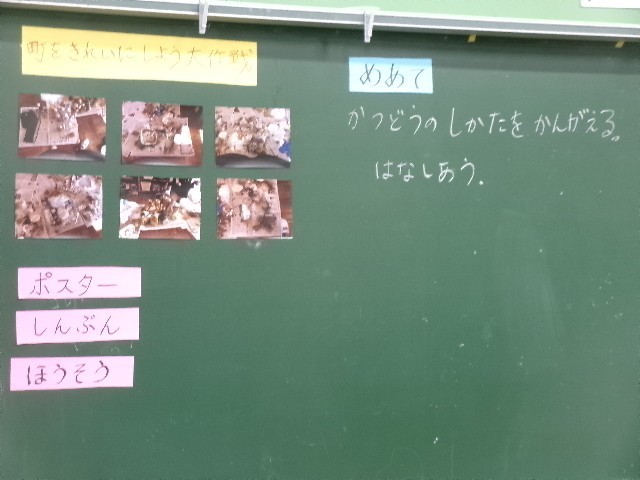 町をきれいにしよう大作戦
めあて
かつどうのしかたをかんがえる。
はなしあう.
ポスター
しんぶん
ほうそう